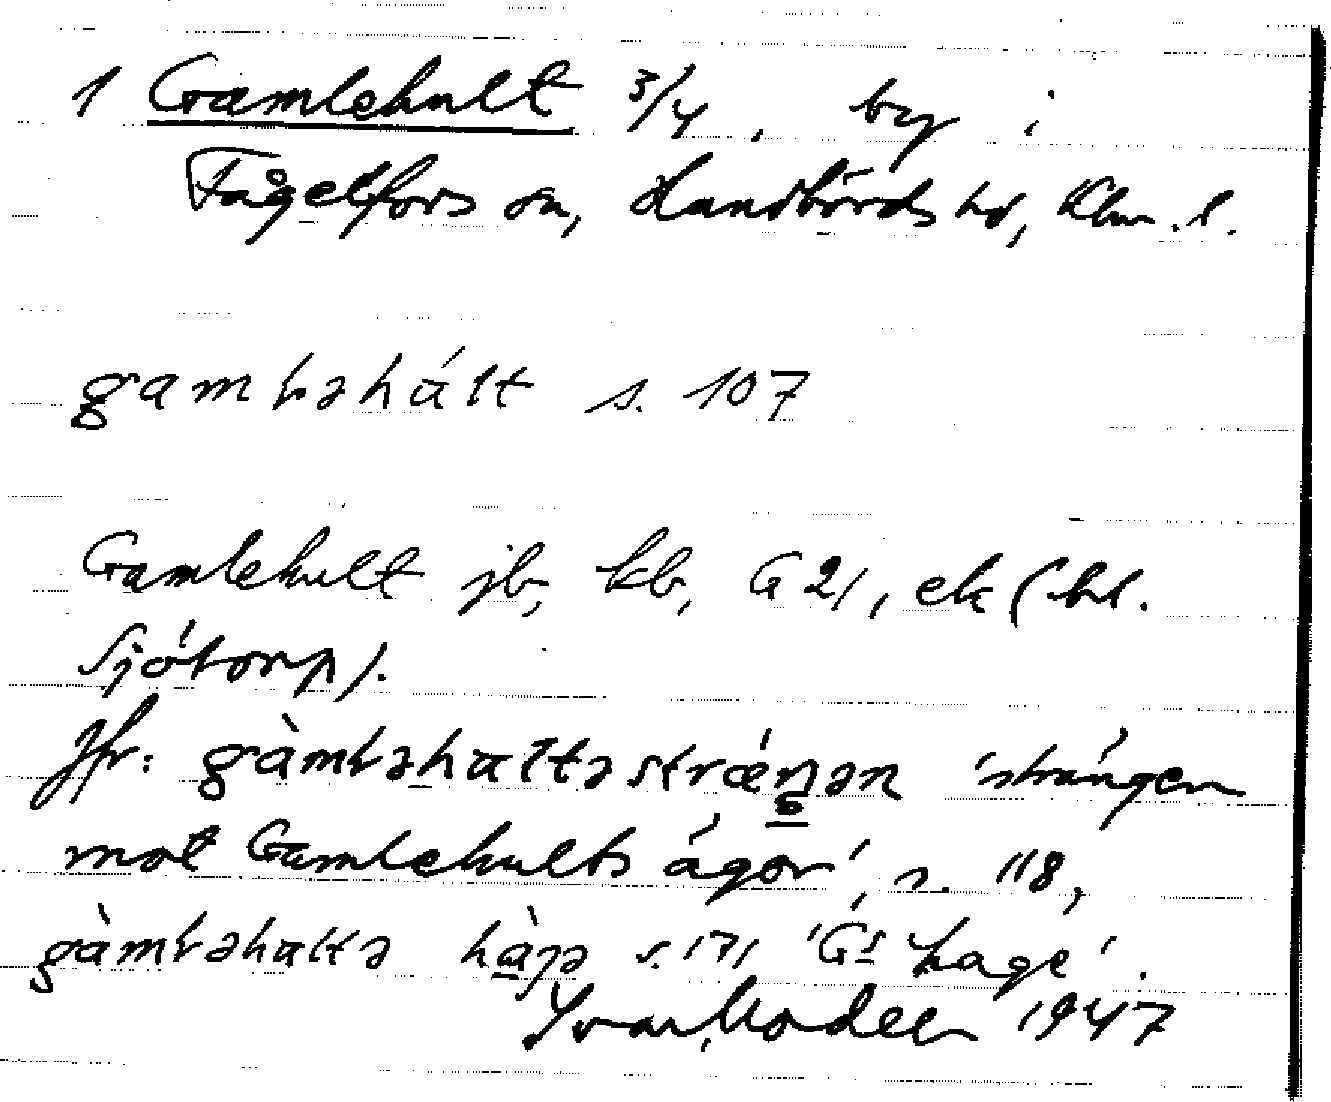 1 Gamlehult 3/4, by i
Fågelfors sn, Handbörds hd, Klm. l.
gamləhált s. 107
Gamlehult jb, kb, G 21, ek (bl.
Sjötorp).
Jfr: gàmləhaltəstrǽŋən 'strängen
mot Gamlehults ägor', s. 118,
gàmləhaltə hàgə s. 171 'Gs hage'.
Ivar Modéer 1947